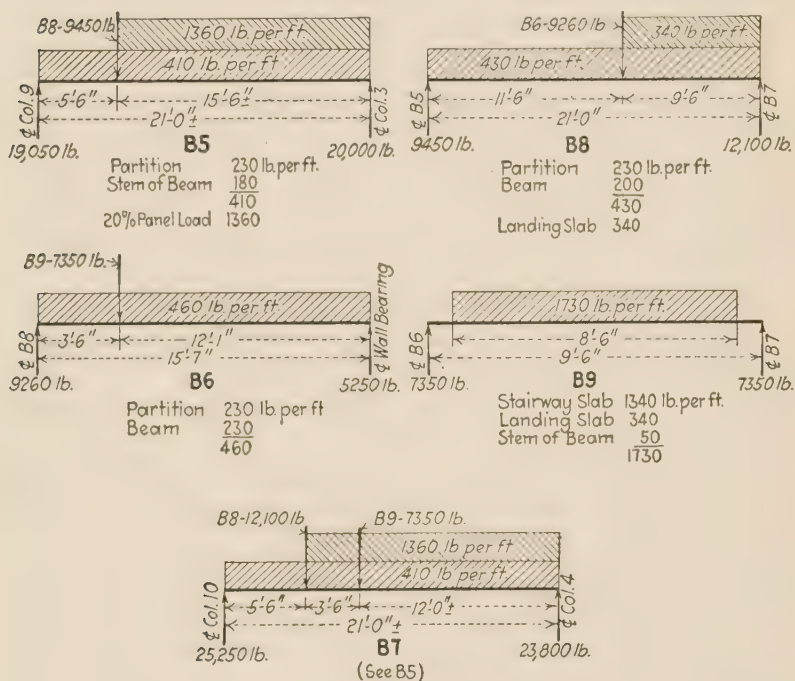 B8-9450lb.
1360 lb. per ft.
410 lb. per ft.
5'-6"
15'-6"±
21'-0"±
℄ Col. 9
℄ Col. 3
19,050 lb.
B5
20,000 lb.
Partition 230 lb. per ft.
Stem of Beam 180
410
20% Panel Load 1360
B6-9260 lb.
340 lb. per ft.
430 lb. per ft.
11'-6"
9'-6"
21'-0"
℄ B5
℄ B7
9450 lb.
B8
12,100 lb.
Partition 230 lb. per ft.
Beam 200
430
Landing Slab 340
B9-7350 lb.
460 lb. per ft.
3'-6"
12'-1"
15'-7"
℄ B8
℄ Wall Bearing
9260 lb.
B6
5250 lb.
Partition 230 lb. per ft
Beam 230
460
1730 lb. per ft.
8'-6"
9'-6"
℄ B6
℄ B7
7350 lb.
B9
7350 lb.
Stairway Slab 1340 lb. per ft.
Landing Slab 340
Stem of Beam 50
1730
B8-12,100 lb
B9-7350 lb.
1360 lb per ft
410 lb. per ft
5'-6"
3'-6"
12'-0"±
21'-0"±
℄ Col. 10
℄ Col. 4
25,250 lb.
B7
23,800 lb.
(See B5)